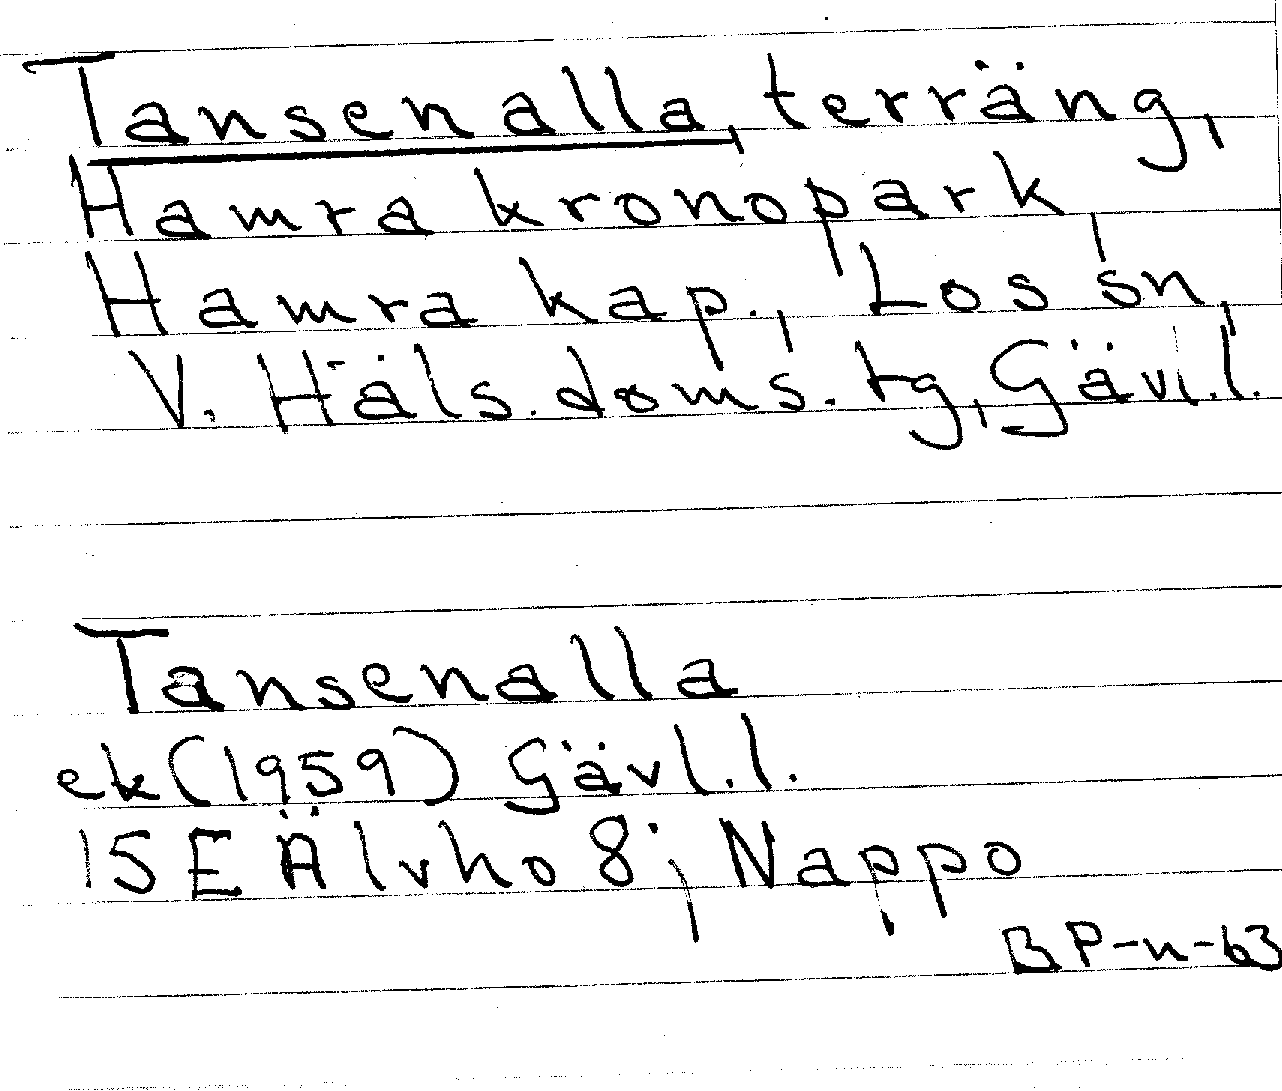 Tansenalla, terräng,
Hamra kronopark,
Hamra kap., Los sn,
V. Häls. doms. tg, Gävl.l.
Tansenalla
ek (1959) Gävl.l.
15E Älvho 8; Nappo
BP-n-63